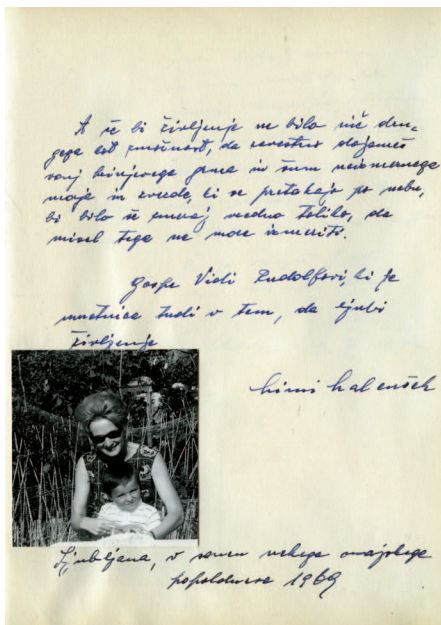 A če bi življenje ne bilo nič dru-
gega kot možnost, da zavestno dojameš
vonj brinjevega grma in šum neizmernega
morja in zvezde, ki se pretakajo po nebu,
bi bilo že zmeraj vredno toliko, da
misel tega ne more izmeriti.
Gospe Vidi Rudolfovi, ki je
umetnica tudi v tem, da ljubi
življenje
Mimi Malenšek
Ljubljana, v nekega majskega
popoldneva 1969